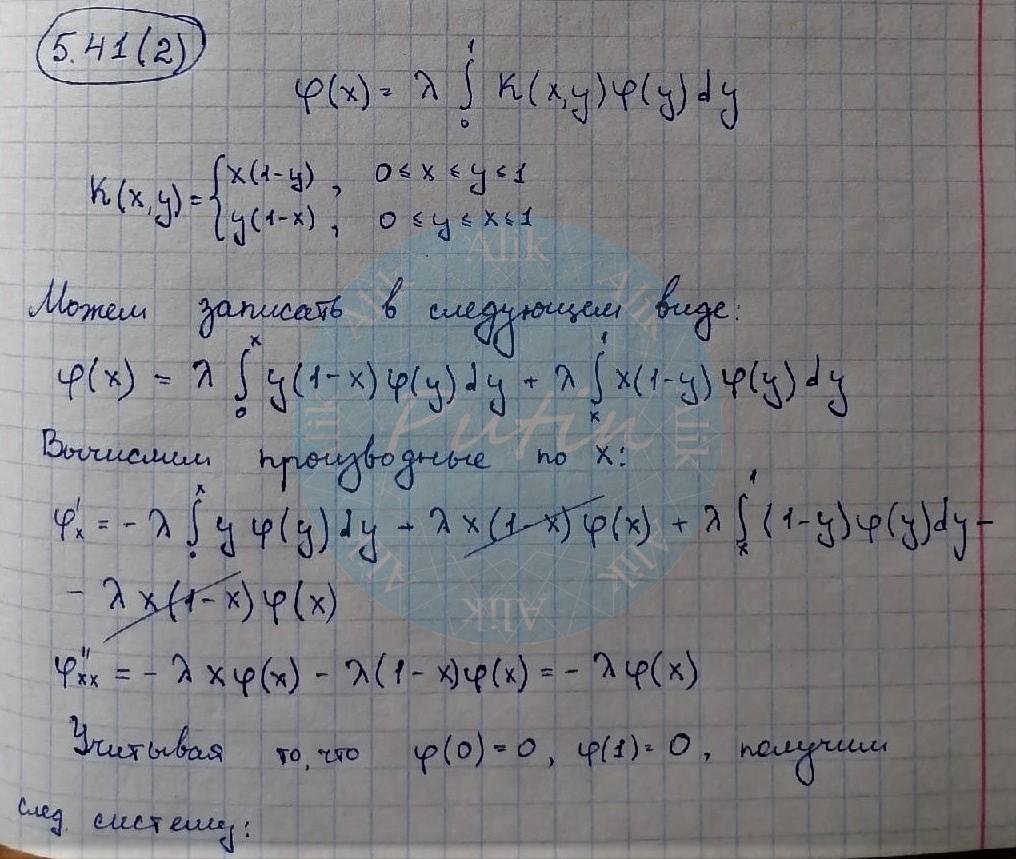 5.41(2)
φ(x) = λ ∫₀¹ K(x,y)φ(y)dy
K(x,y) = { x(1-y), 0 ≤ x ≤ y ≤ 1
y(1-x), 0 ≤ y ≤ x ≤ 1
Можем записать в следующем виде:
φ(x) = λ ∫₀ˣ y(1-x)φ(y)dy + λ ∫ₓ¹ x(1-y)φ(y)dy
Вычислим производные по x:
φ'ₓ = - λ ∫₀ˣ y φ(y)dy + λx(1-x)φ(x) + λ ∫ₓ¹ (1-y)φ(y)dy -
- λx(1-x)φ(x)
φ''ₓₓ = - λxφ(x) - λ(1-x)φ(x) = - λφ(x)
Учитывая то, что φ(0)=0, φ(1)=0, получим
след. систему:
Alik
Alik
Alik
Alik
Alik
Alik
Alik
Alik
Putin